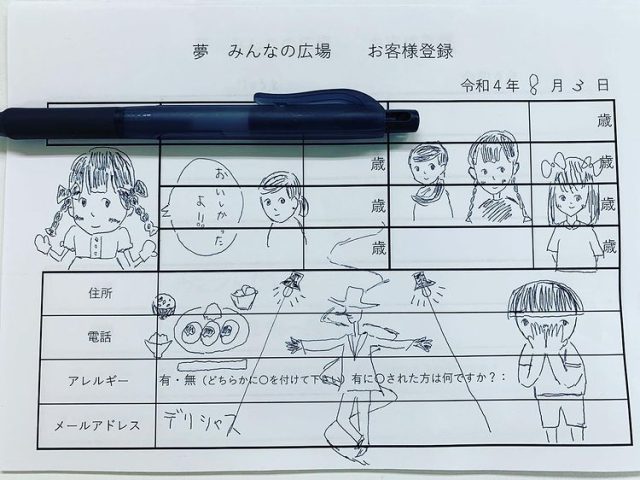 夢 みんなの広場 お客様登録
令和4年 8月 3日
歳
歳 歳
おいしかったよ!!
歳 歳
歳 歳
住所
電話
アレルギー 有・無(どちらかに〇を付けて下さい)有に〇された方は何ですか?:
メールアドレス デリシャス